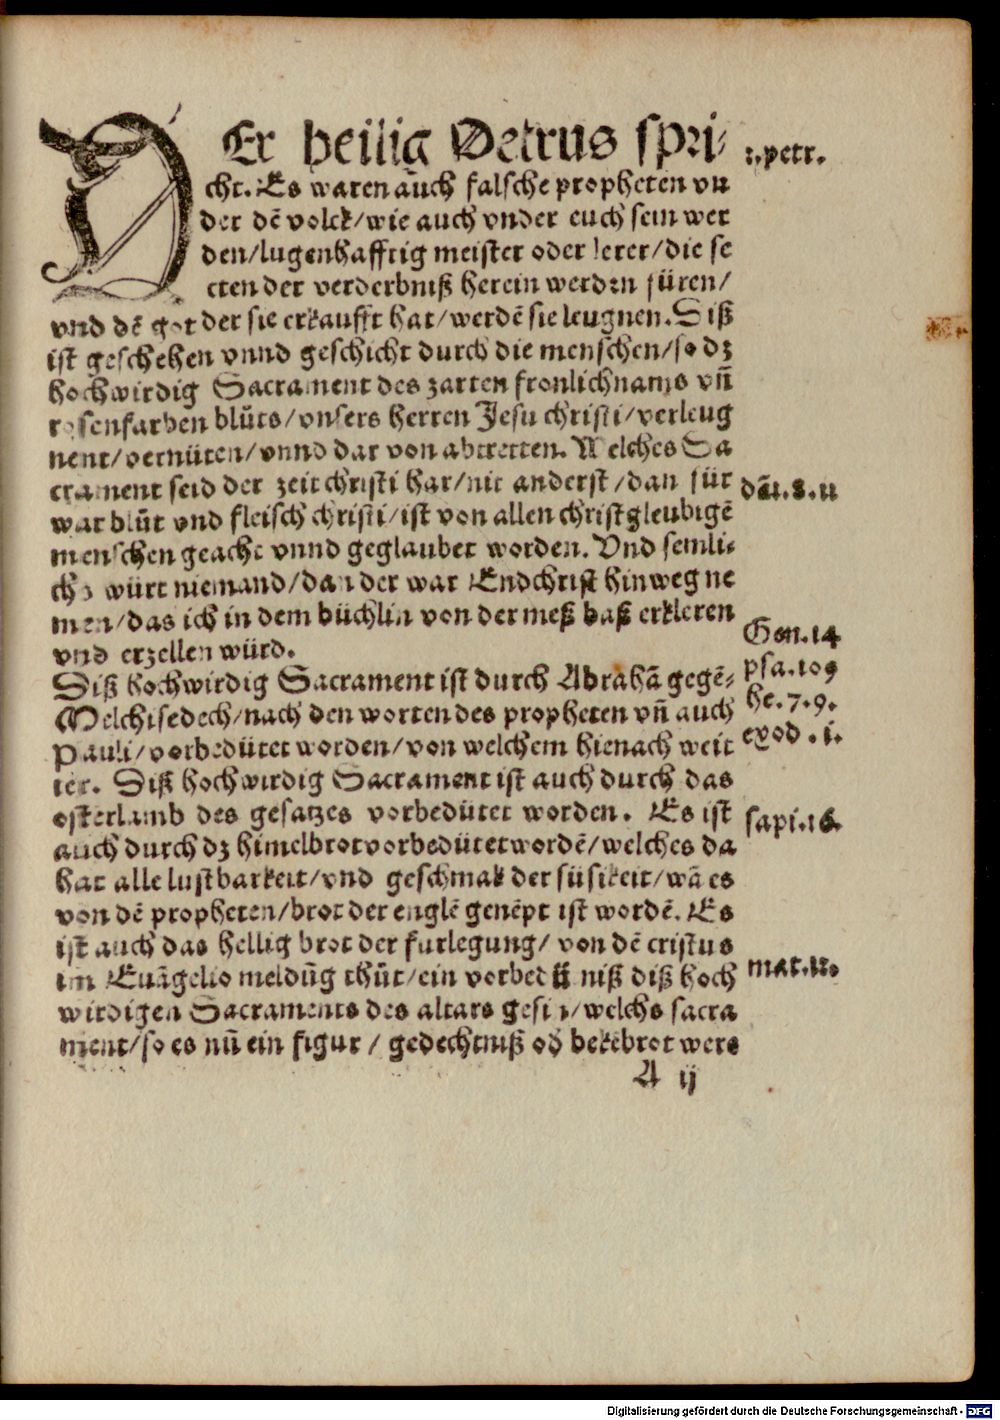 DEr heilig Petrus spri⸗
cht. Es waren auch falsche propheten vn
der dē volck/wie auch vnder euch sein wer
den/lugenhafftig meister oder lerer/die se
cten der verderbniß herein werden füren/
vnd dē got der sie erkaufft hat/werdē sie leugnen. Diß
ist geschehen vnnd geschicht durch die menschen/so dz
hochwirdig Sacrament des zarten fronlichnams vn̄
rosenfarben blůts/vnsers herren Jesu christi/verleug
nent/vernüten/vnnd dar von abtretten. Welches Sa
crament seid der zeit christi har/nit anderst/dan für
war blůt vnd fleisch christi/ist von allen christgleubigē
menschen geacht vnnd geglaubet worden. Vnd semli⸗
chs würt niemand/dan der war Endchrist hinweg ne
men/das ich in dem büchlin von der meß baß erkleren
vnd erzellen würd.
Diß hochwirdig Sacrament ist durch Abrahā gegē⸗
Melchisedech/nach den worten des propheten vn̄ auch
Pauli/vorbedütet worden/von welchem hienach weit
ter. Diß hochwirdig Sacrament ist auch durch das
osterlamb des gesatzes vorbedütet worden. Es ist
auch durch dz himelbrot vorbedütet wordē/welches da
hat alle lustbarkeit/vnd geschmak der süsikeit/wā es
von dē propheten/brot der englē genēpt ist wordē. Es
ist auch das heilig brot der furlegung/von dē cristus
im Euāgelio meldūg thůt/ein vorbedütniß diß hoch
wirdigen Sacraments des altars gesin/welchs sacra
ment/so es nū ein figur/gedechtniß od bekebrot were
A ij
2.petr.
dāı.8.11
Gen.14
psa.109
he.7.9.
exod.i.
sapi.16.
mat.12.
Digitalisierung gefördert durch die Deutsche Forschungsgemeinschaft - DFG